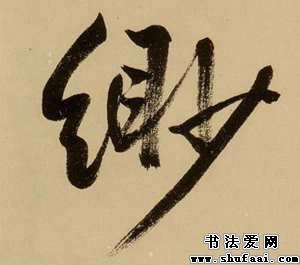 缈
书法爱网
www.shufaai.com